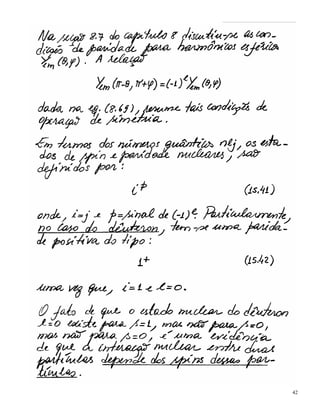 Na seção 8.7 do capítulo 8 discutiu-se as con-
dições de paridade para harmônicos esféricos
Yℓm (θ,φ). A relação
Yℓm (π-θ, π+φ) = (-1)^ℓ Yℓm (θ,φ)
dada na eq. (8.69), resume tais condições de
operação de simetria.
Em termos dos números quânticos nℓj, os esta-
dos de spin e paridade nucleares, são
definidos por:
i^p (15.41)
onde, i=j e p=sinal de (-1)^ℓ. Particularmente,
no caso do dêuteron, tem-se uma parida-
de positiva do tipo:
1+ (15.42)
uma vez que, i=1 e ℓ=0.
O fato de que o estado nuclear do dêuteron
ℓ=0 existe para s=1, mas não para s=0,
mas não para s=0, é uma evidência
de que a interação nuclear entre duas
partículas depende dos spins dessas par-
tículas.
42